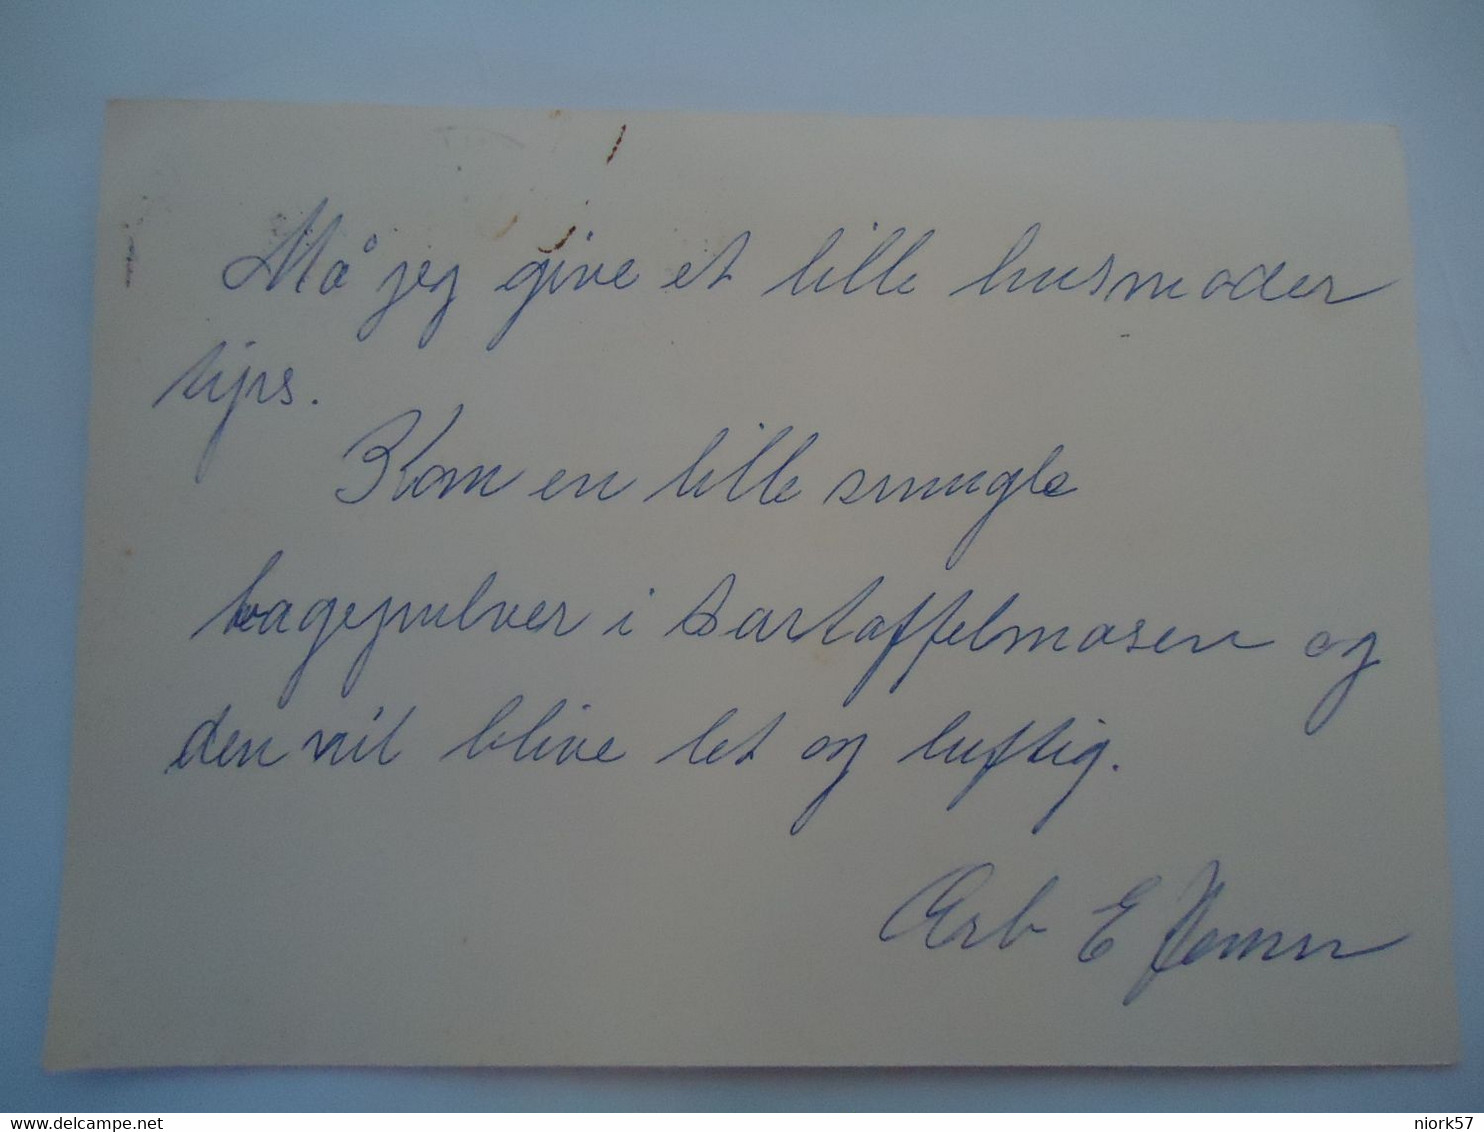 Må jeg give et lille husmoder
tips.
Kom en lille smugle
bagepulver i kartoffelmosen og
den vil blive let og luftig.
Ærb E Jensen
delcampe.net
niork57